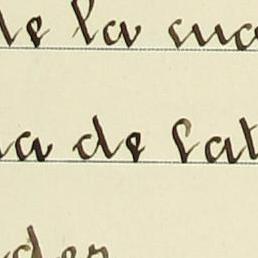 de la suc
a de Sat
der